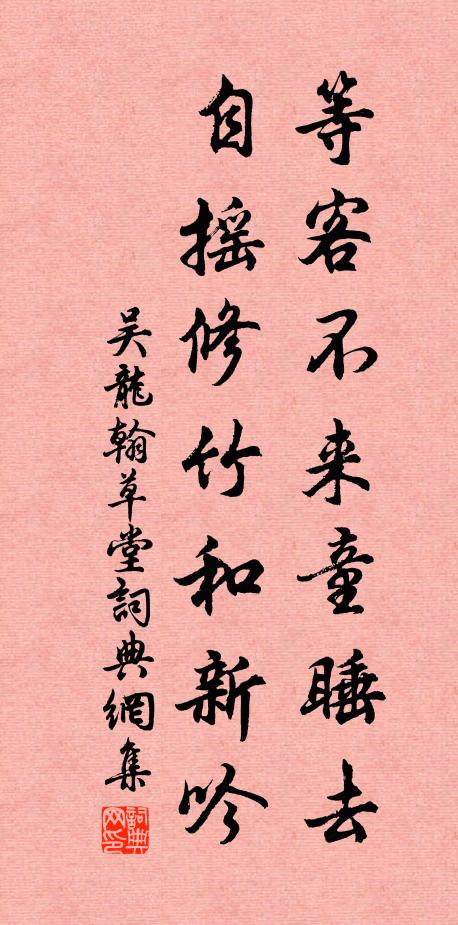 等客不来童睡去
自摇修竹和新吟
吴龍翰草堂詞典網集
詞典网印